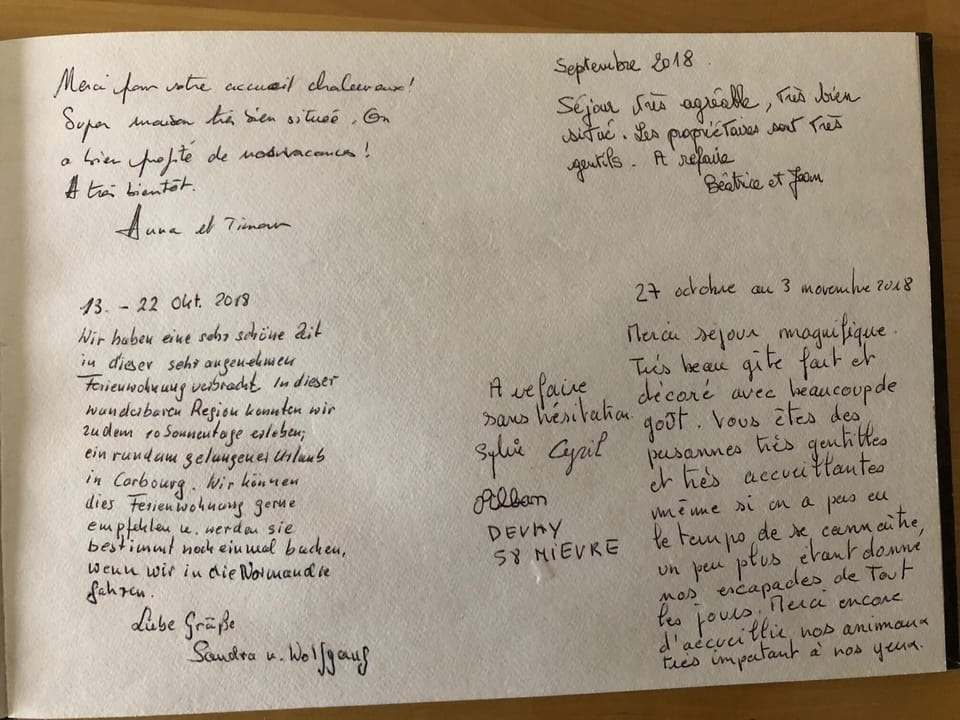 Merci pour votre accueil chaleureux!
Super maison très bien située. On
a bien profité de nos vacances!
A très bientôt.
Anna et
Septembre 2018
Séjour très agréable, très bien
situé. Les propriétaires sont très
gentils. A refaire
Béatrice et Jean
13. - 22 Okt. 2018
Wir haben eine sehr schöne Zeit
in dieser sehr angenehmen
Ferienwohnung verbracht. In dieser
wunderbaren Region konnten wir
zudem 10 Sonnentage erleben;
ein rundum gelungener Urlaub
in Carbourg. Wir können
dies Ferienwohnung gerne
empfehlen u. werden sie
bestimmt noch einmal buchen,
wenn wir in die Normandie
fahren.
Liebe Grüße
Sandra u. Wolfgang
27 octobre au 3 novembre 2018
Merci séjour magnifique.
Très beau gîte fait et
décoré avec beaucoup de
goût. Vous êtes des
personnes très gentilles
et très accueillantes
même si on a pas eu
le temps de se connaître,
un peu plus étant donné
nos escapades de tout
les jours. Merci encore
d'accueillir nos animaux
très important à nos yeux.
A refaire
sans hésitation.
Sylvie Cyril
Alban
DEVAY
58 MIEVRE